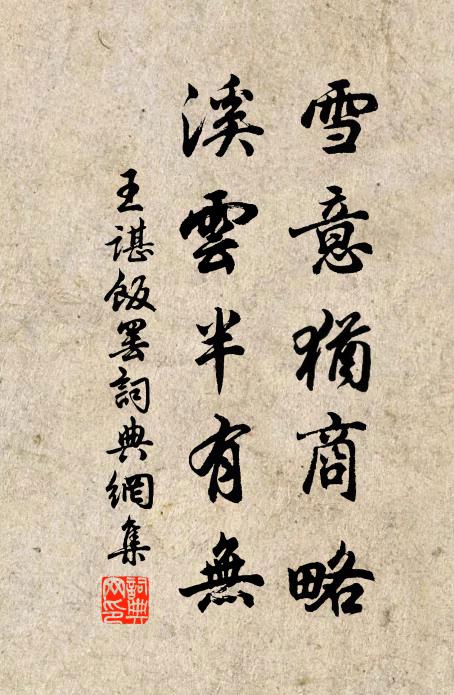 雪意猶商略
溪雲半有無
王諶飯罢詞典網集
詞典網印